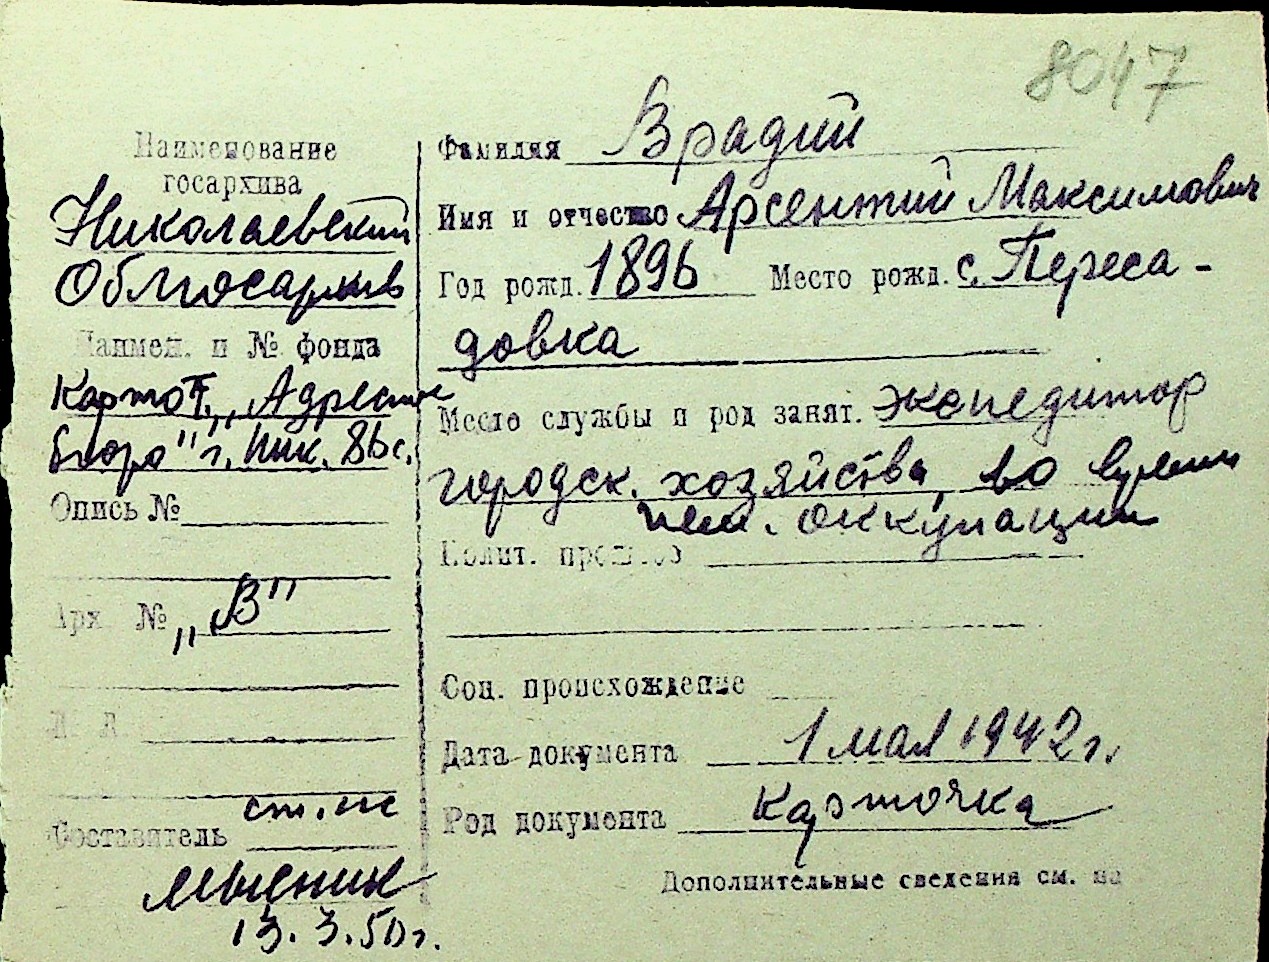 8047
Наименование
госархива
Николаевский
Облгосархив
Наимен. и № фонда
Картот. „Адресное
бюро" г. Ник. 86 с.
Опись №
Арх. № „В"
Л. Л.
Составитель ст. нс
Мысник
13.3.50 г.
Фамилия Врадий
Имя и отчество Арсентий Максимович
Год рожд. 1896 Место рожд. с. Переса-
довка
Место службы и род занят. экспедитор
городск. хозяйства, во время
нем. оккупации
Полит. прошлое
Соц. происхождение
Дата документа 1 мая 1942 г.
Род документа Карточка
Дополнительные сведения см. на